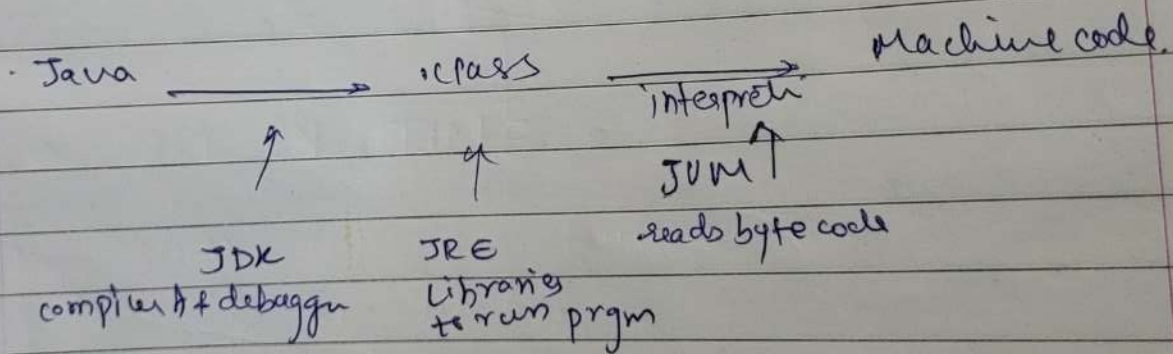 .Java .class Machine code
interpret
JVM
reads byte code
JDK JRE
compiler & debugger Libraries
to run prgm